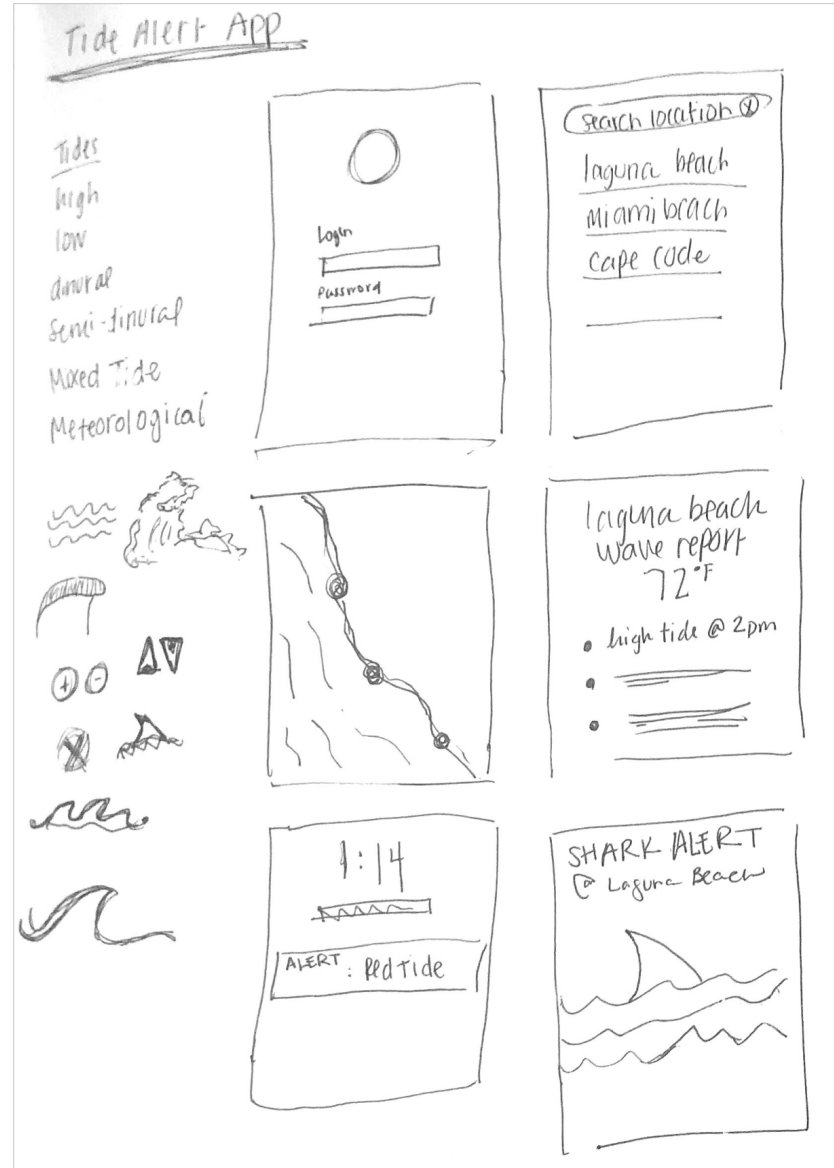 Tide Alert App
Tides
high
low
dinural
Semi-dinural
Mixed Tide
Meteorological
Login
Password
search location
laguna beach
Miami beach
cape code
laguna beach
wave report
72°F
high tide @ 2pm
1:14
ALERT: Red Tide
SHARK ALERT
@ Laguna Beach